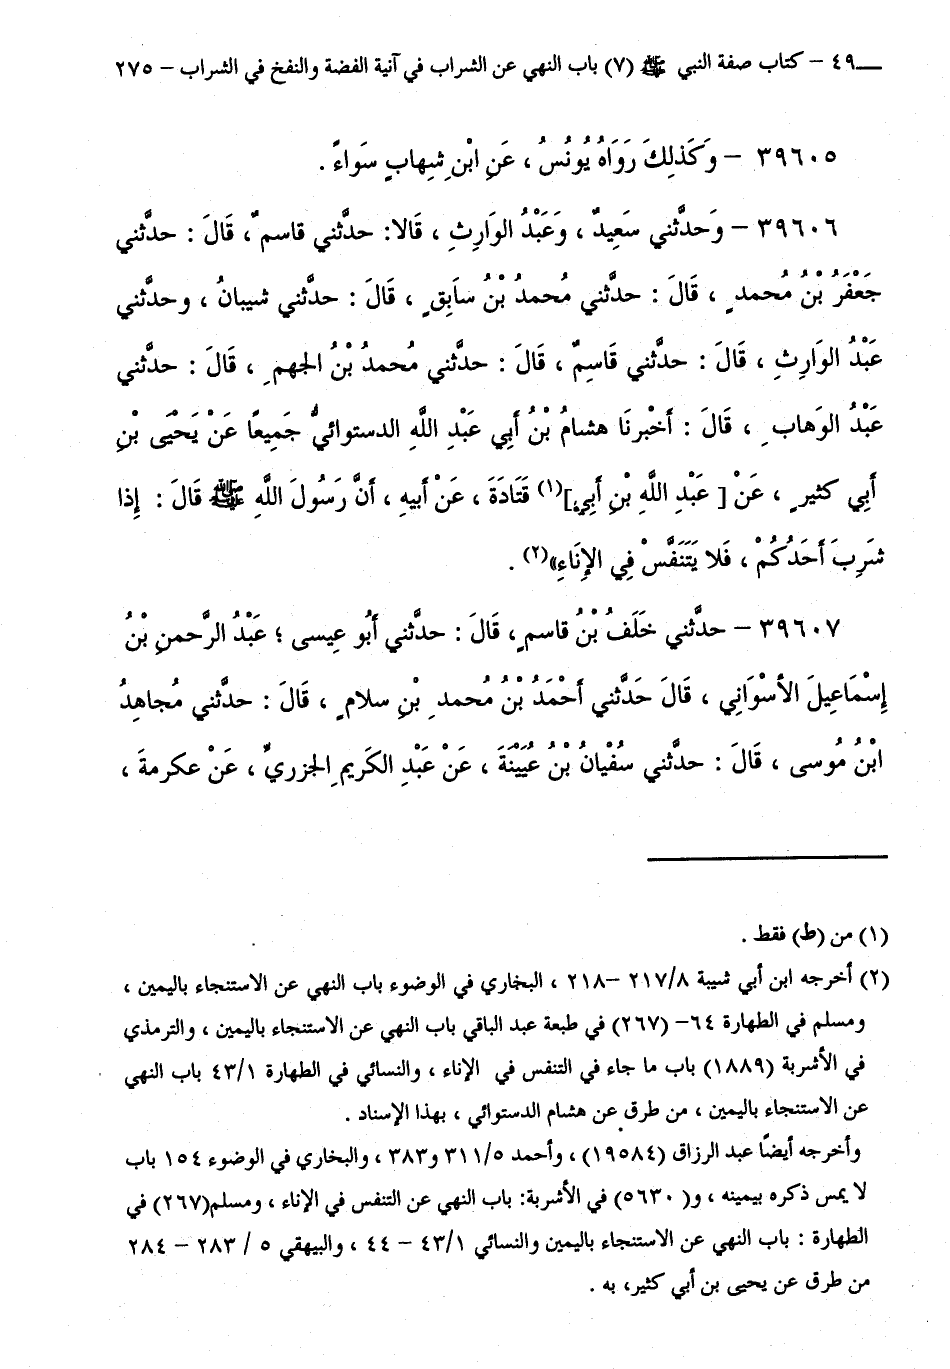 ـــ٤٩ – كتاب صفة النبي ﷺ (٧) باب النهي عن الشراب في آنية الفضة والنفخ في الشراب – ٢٧٥
٣٩٦٠٥ – وَكَذلِكَ رَوَاهُ يُونُسُ ، عَنِ ابْنِ شِهابٍ سَواءً .
٣٩٦٠٦ – وَحدَّثني سَعِيدٌ ، وَعَبْدُ الوَارِثِ ، قَالا: حدَّثني قاسمٌ ، قَالَ : حدَّثني
جَعْفَرُ بْنُ مُحمدٍ ، قَالَ : حدَّثني مُحمدُ بْنُ سَابَقٍ ، قَالَ : حدَّثني شيبانُ ، وحدَّثني
عَبْدُ الوَارِثِ ، قَالَ : حدَّثني قَاسِمٌ ، قَالَ : حدَّثني مُحمدُ بْنُ الجهمِ ، قَالَ : حدَّثني
عَبْدُ الوَهابِ ، قَالَ : أَخْبرنَا هشامُ بْنُ أَبِي عَبْدِ اللَّهِ الدستوائيُّ جَمِيعًا عَنْ يَحْيَى بْنِ
أَبِي كثيرٍ ، عَنْ [ عَبْدِ اللَّهِ بْنِ أَبِي](١) قَتَادَةَ ، عَنْ أَبيهِ ، أَنَّ رَسُولَ اللَّهِ ﷺ قَالَ : إِذا
شَرِبَ أَحَدُكُمْ ، فَلا يَتَنَفَّسْ فِي الإِنَاءِ»(٢) .
٣٩٦٠٧ – حدَّثني خَلَفُ بْنُ قاسمٍ ، قَالَ : حدَّثني أَبُو عِيسى ؛ عَبْدُ الرَّحمنِ بْنُ
إِسْمَاعِيلَ الأَسْوَانِي ، قَالَ حَدَّثني أَحْمَدُ بْنُ مُحمدِ بْنِ سلامٍ ، قَالَ : حدَّثني مُجاهِدُ
ابْنُ مُوسى ، قَالَ : حدَّثني سُفْيانُ بْنُ عُيَيْنَةَ ، عَنْ عَبْدِ الكَريمِ الجزريِّ ، عَنْ عكرمةَ ،
(١) من (ط) فقط .
(٢) أخرجه ابن أبي شيبة ٢١٧/٨ –٢١٨ ، البخاري في الوضوء باب النهي عن الاستنجاء باليمين ،
ومسلم في الطهارة ٦٤– (٢٦٧) في طبعة عبد الباقي باب النهي عن الاستنجاء باليمين ، والترمذي
في الأشربة (١٨٨٩) باب ما جاء في التنفس في الإناء ، والنسائي في الطهارة ٤٣/١ باب النهي
عن الاستنجاء باليمين ، من طرق عن هشام الدستوائي ، بهذا الإسناد .
وأخرجه أيضًا عبد الرزاق (١٩٥٨٤) ، وأحمد ٣١١/٥ و٣٨٣ ، والبخاري في الوضوء ١٥٤ باب
لا يمس ذكره بيمينه ، و( ٥٦٣٠) في الأشربة: باب النهي عن التنفس في الإناء ، ومسلم(٢٦٧) في
الطهارة : باب النهي عن الاستنجاء باليمين والنسائي ٤٣/١ – ٤٤ ، والبيهقي ٥ / ٢٨٣ – ٢٨٤
من طرق عن يحيى بن أبي كثير، به .